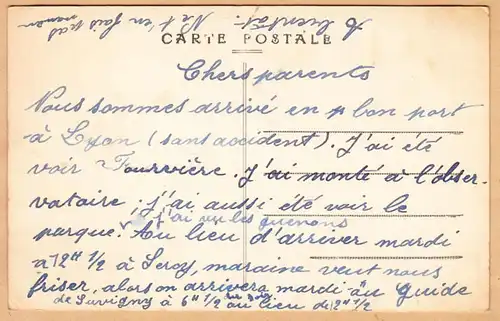 A bientôt. Ne t'en fais pas
maman
CARTE POSTALE
Chers parents
Nous sommes arrivé en bon port
à Lyon (sans accident). J'ai été
voir Fourvière. J'ai monté à l'obser-
vatoire ; j'ai aussi été voir le
parque. j'ai vu les guenons
Au lieu d'arriver mardi
à 12H 1/2 à Sercy, maraine veut nous
friser, alors on arrivera mardi au Guide
de Suvigny à 6H 1/2 au lieu de 12H 1/2